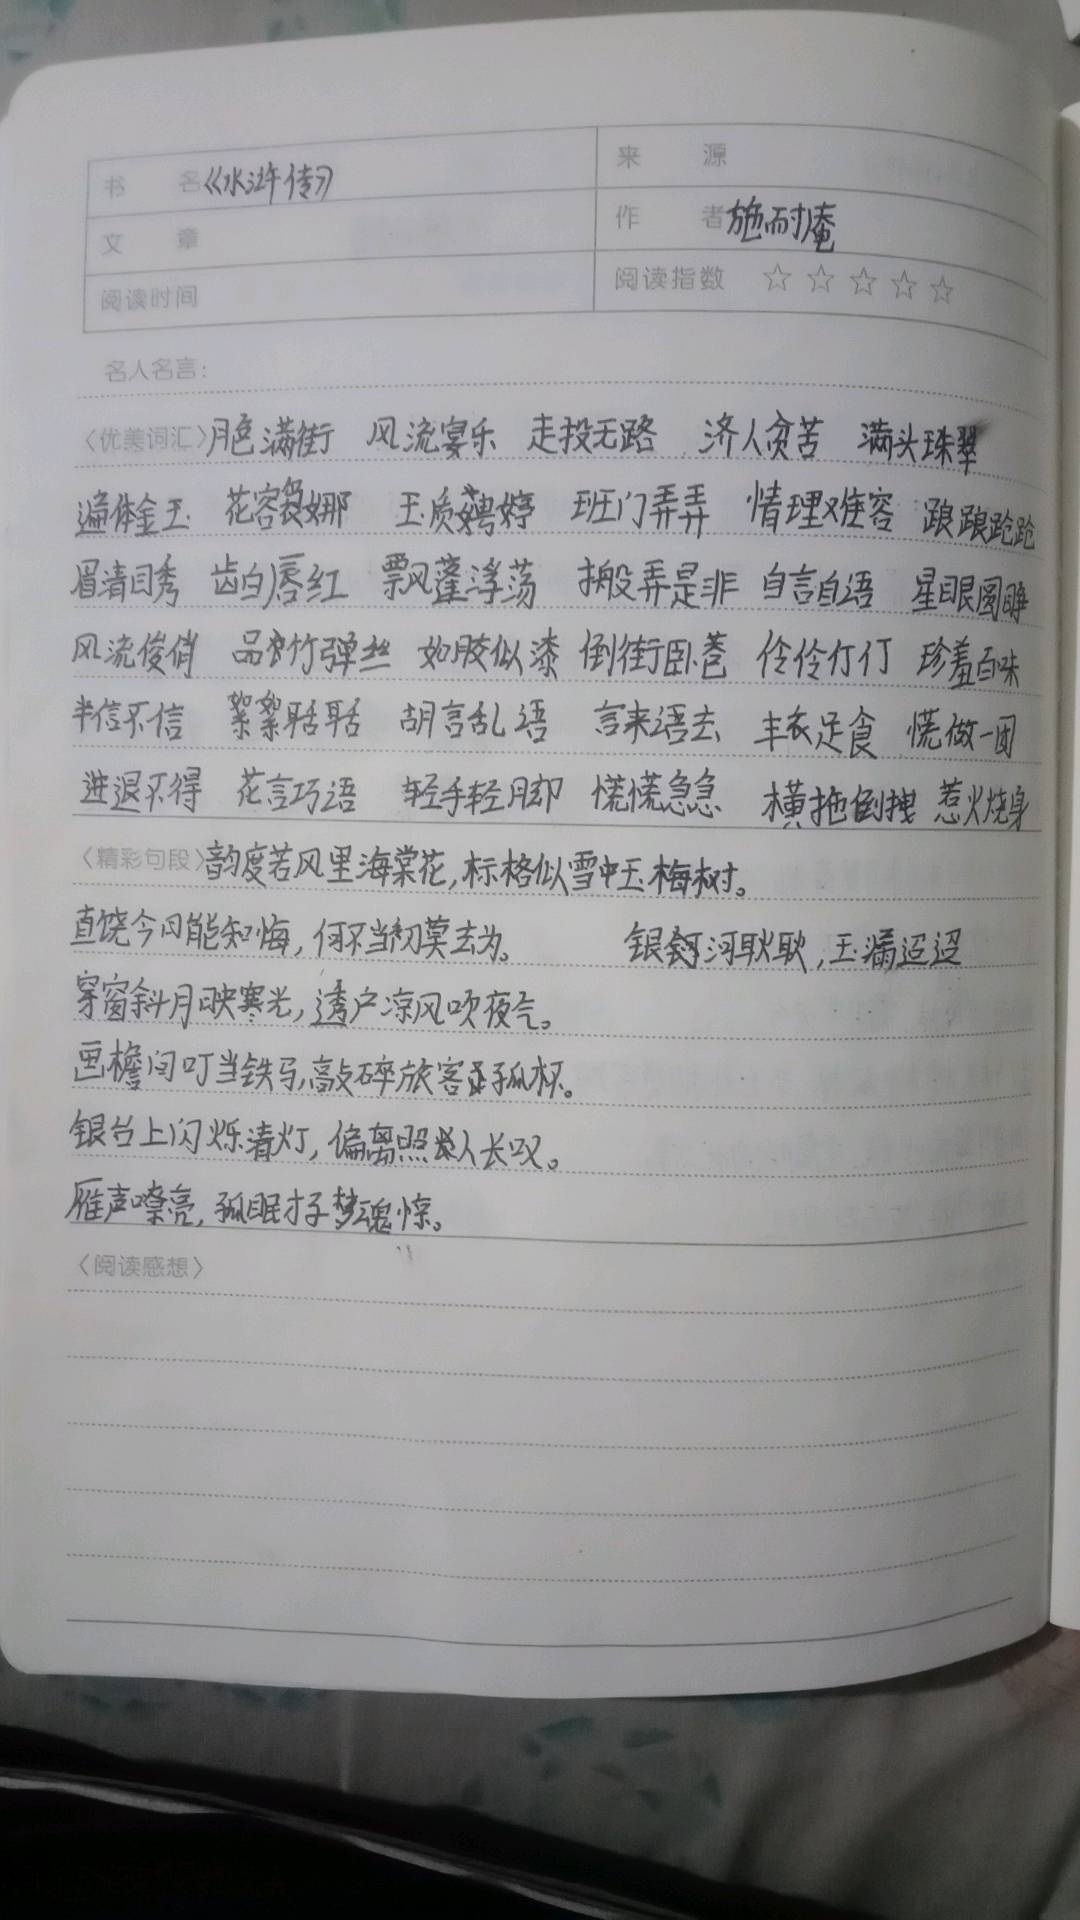 书 名 《水浒传》 来 源
文 章 作 者 施耐庵
阅读时间 阅读指数 ☆☆☆☆☆
名人名言:
〈优美词汇〉月色满街 风流宴乐 走投无路 济人贫苦 满头珠翠
遍体金玉 花容袅娜 玉质娉婷 班门弄弄 情理难容 踉踉跄跄
眉清目秀 齿白唇红 飘蓬浮荡 搬弄是非 自言自语 星眼圆睁
风流俊俏 品竹弹丝 如胶似漆 倒街卧巷 伶伶仃仃 珍羞百味
半信不信 絮絮聒聒 胡言乱语 言来语去 丰衣足食 慌做一团
进退不得 花言巧语 轻手轻脚 慌慌急急 横拖倒拽 惹火烧身
〈精彩句段〉韵度若风里海棠花,标格似雪中玉梅树。
直饶今日能知悔,何不当初莫去为。 银河耿耿,玉漏迢迢
穿窗斜月映寒光,透户凉风吹夜气。
画檐间叮当铁马,敲碎旅客孤杯。
银台上闪烁清灯,偏离照人长叹。
雁声嘹亮,孤眠才子梦魂惊。
〈阅读感想〉